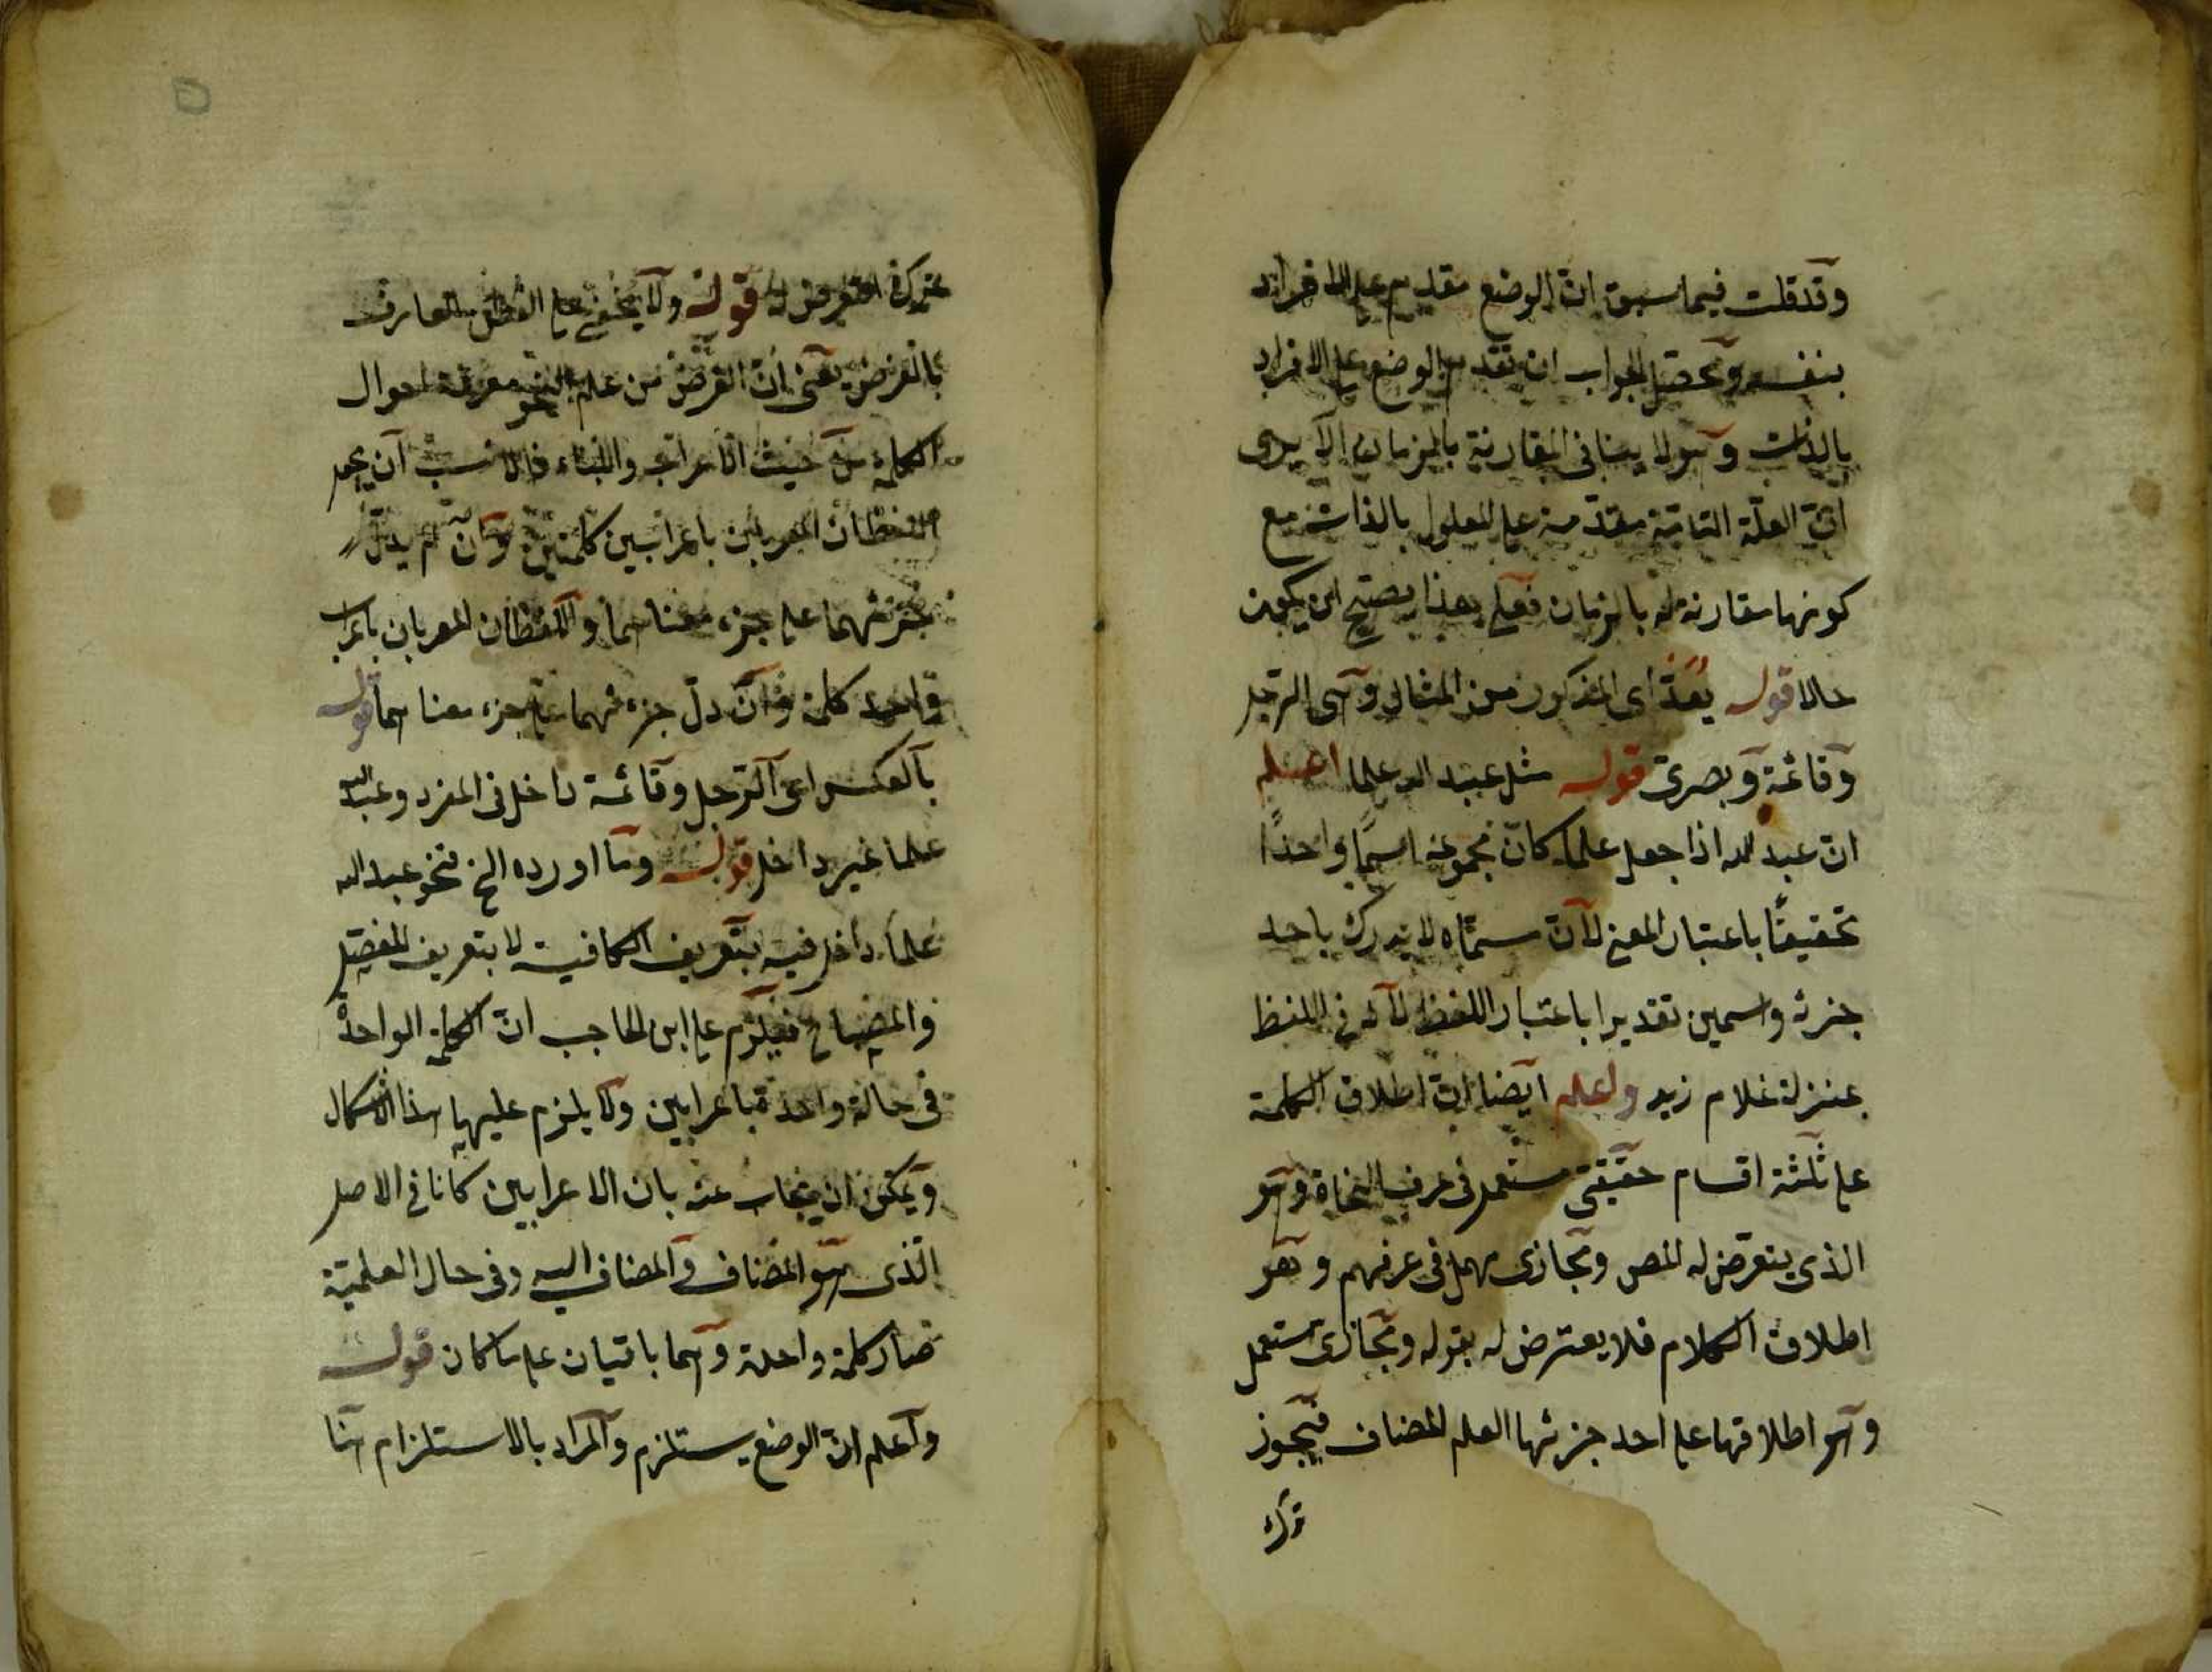 وقد قلت فيما سبق ان الوضع مقدم على الافراد
بنفسه وتحصل الجواب ان تقدم الوضع على الافراد
بالذات وهو لا ينافى المقارنة بالزمان الا يرى
ان العلة التامة مقدمة على المعلول بالذات مع
كونها مقارنة له بالزمان فعلى هذا يصح ان يكون
حالا قوله يعد اى المذكور من المثال وهى الرجل
وقائمة وبصرى قوله مثل عبد الله علما اعلم
ان عبد الله اذا جعل علما كان مجموعه اسما واحدا
تحقيقا باعتبار المعنى لان مسماه لا يدرك باحد
جزئه واسمين تقديرا باعتبار اللفظ لانه فى اللفظ
بمنزلة غلام زيد واعلم ايضا ان اطلاق الكلمة
على ثلثة اقسام حقيقى مستعمل فى عرف النحاة وهو
الذى يتعرض له المص ومجازى مهمل فى عرفهم وهو
اطلاق الكلام فلا يعترض له بقوله ومجازى مستعمل
وهو اطلاقها على احد جزئها العلم المضاف فيجوز
ترك
ترك التعرض له قوله ولا يخفى على الفطن العارف
بالغرض يعنى ان الغرض من علم النحو معرفة احوال
الكلمة من حيث الاعراب والبناء فالانسب ان يجعل
اللفظان المعربان باعرابين كلمتين وان لم يدل
جزئهما على جزء معناهما واللفظان المعربان باعراب
واحد كلمة وان دل جزء منهما على جزء معناهما قوله
بالعكس اى الرجل وقائمة داخل فى المفرد وعبد الله
علما غير داخل قوله وما اورده الخ فنحو عبد الله
علما داخل فيه بتعريف الكافية لا بتعريف المفصل
والمصباح فيلزم على ابن الحاجب ان الكلمة الواحدة
فى حالة واحدة باعرابين ولا يلزم عليها هذا الاشكال
ويمكن ان يجاب عنه بان الاعرابين كانا فى الاصل
الذى هو المضاف والمضاف اليه وفى حال العلمية
صار كلمة واحدة وهما باقيان على ما كان قوله
واعلم ان الوضع يستلزم والمراد بالاستلزام هنا